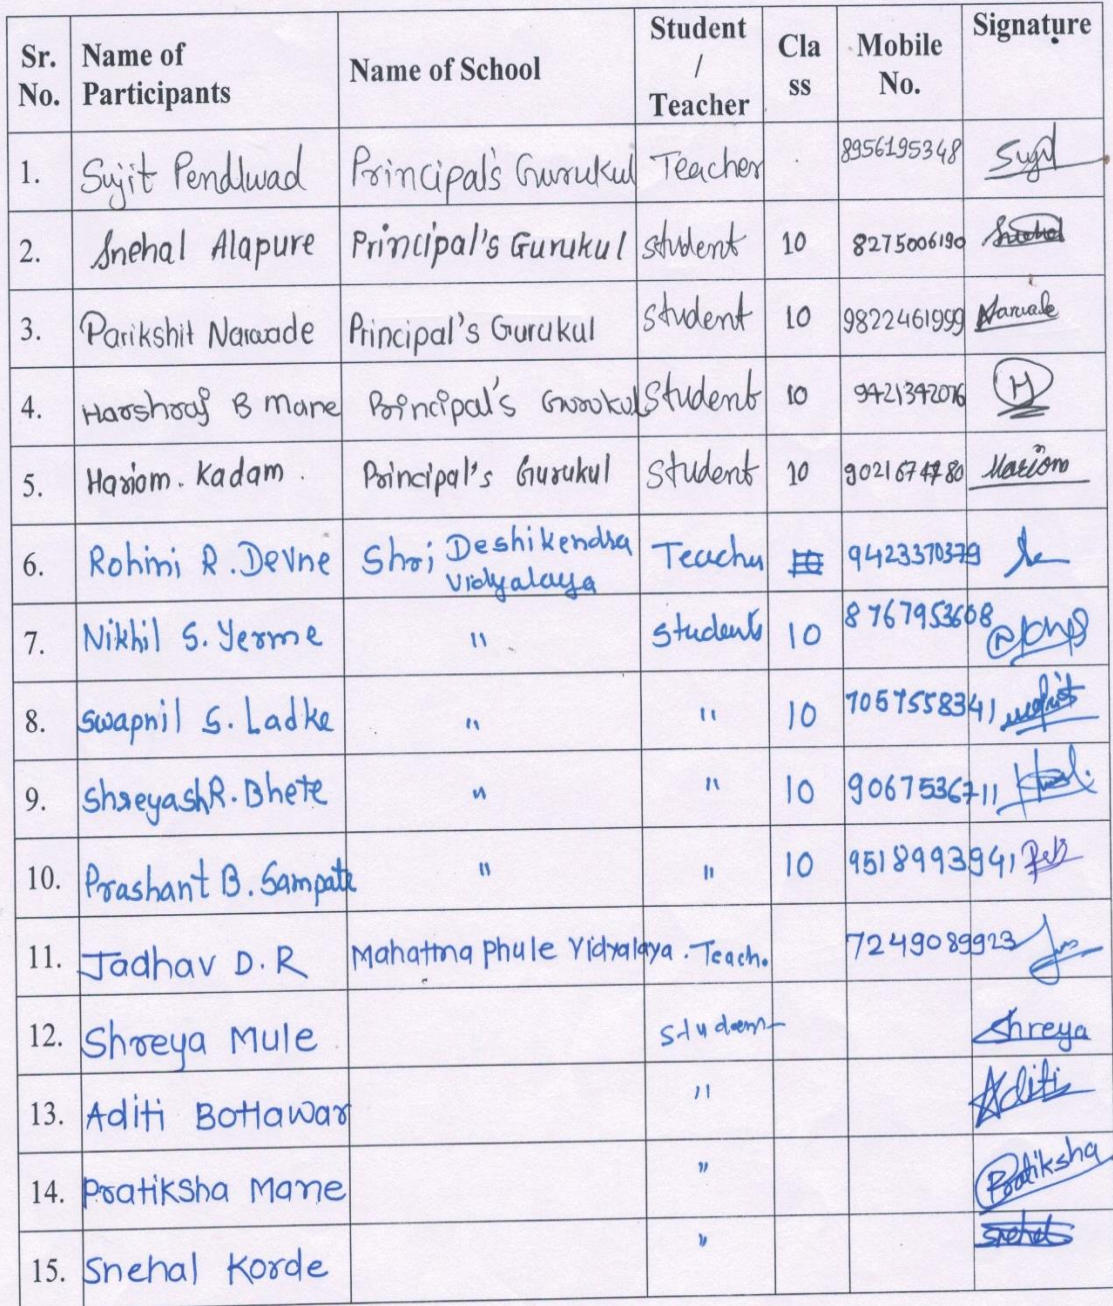 Sr. No. Name of Participants Name of School Student / Teacher Cla ss Mobile No. Signature
1. Sujit Pendlwad Principal's Gurukul Teacher 8956195348 Sujit
2. Snehal Alapure Principal's Gurukul student 10 8275006190 Snehal
3. Parikshit Narwade Principal's Gurukul student 10 9822461999
4. Harshraj B Mane Principal's Gurukul Student 10 9421342076 H
5. Hariom. Kadam. Principal's Gurukul student 10 9021674780 Hariom
6. Rohini R. Devne Shri Deshikendra Vidyalaya Teacher 9423370379
7. Nikhil S. Yerme " students 10 8767953608
8. Swapnil S. Ladke " " 10 7057558341
9. Shreyash R. Bhete " " 10 9067536711
10. Prashant B. Sampate " " 10 9518993941
11. Jadhav D. R Mahatma Phule Vidyalaya. Teach. 7249089923
12. Shreya Mule student Shreya
13. Aditi Bottawar " Aditi
14. Pratiksha Mane " Pratiksha
15. Snehal Korde " Snehal